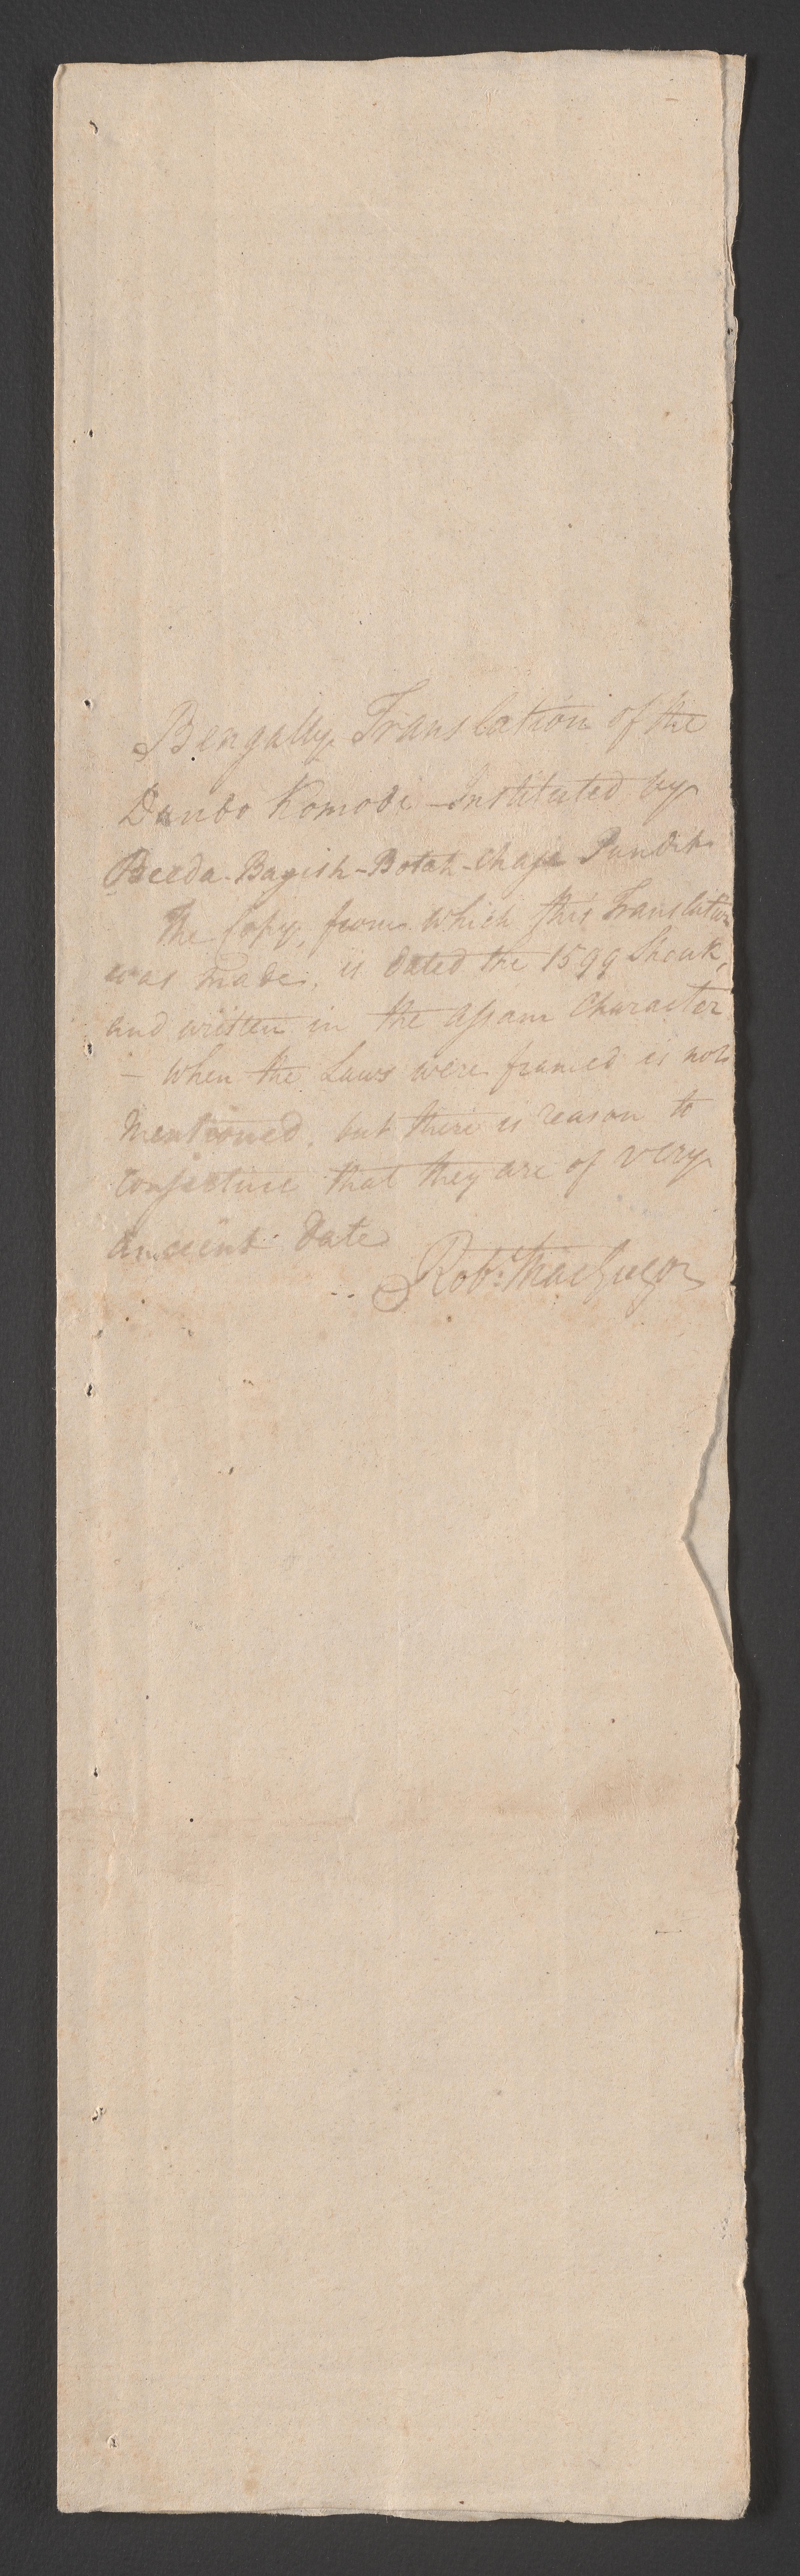 Bengally Translation of the
Dundo Komodi - Instituted by
Beeda-Bagish-Botah-Chaje Pundit.
The Copy, from which this Translation
was made, is dated the 1599 Shouk,
and written in the Assam Character
- when the Laws were framed is not
mentioned, but there is reason to
conjecture that they are of very
ancient date
Robt: MacGregor